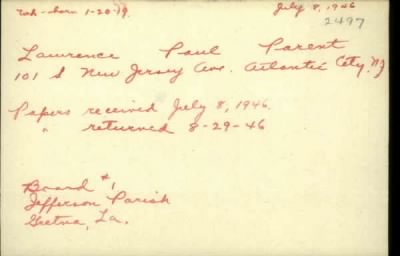 born 1-20-19
July 8, 1946
2497
Lawrence Paul Parent
101 S New Jersey Ave. Atlantic City, NJ
Papers received July 8, 1946.
" returned 8-29-46
Board #1
Jefferson Parish
Gretna, La.